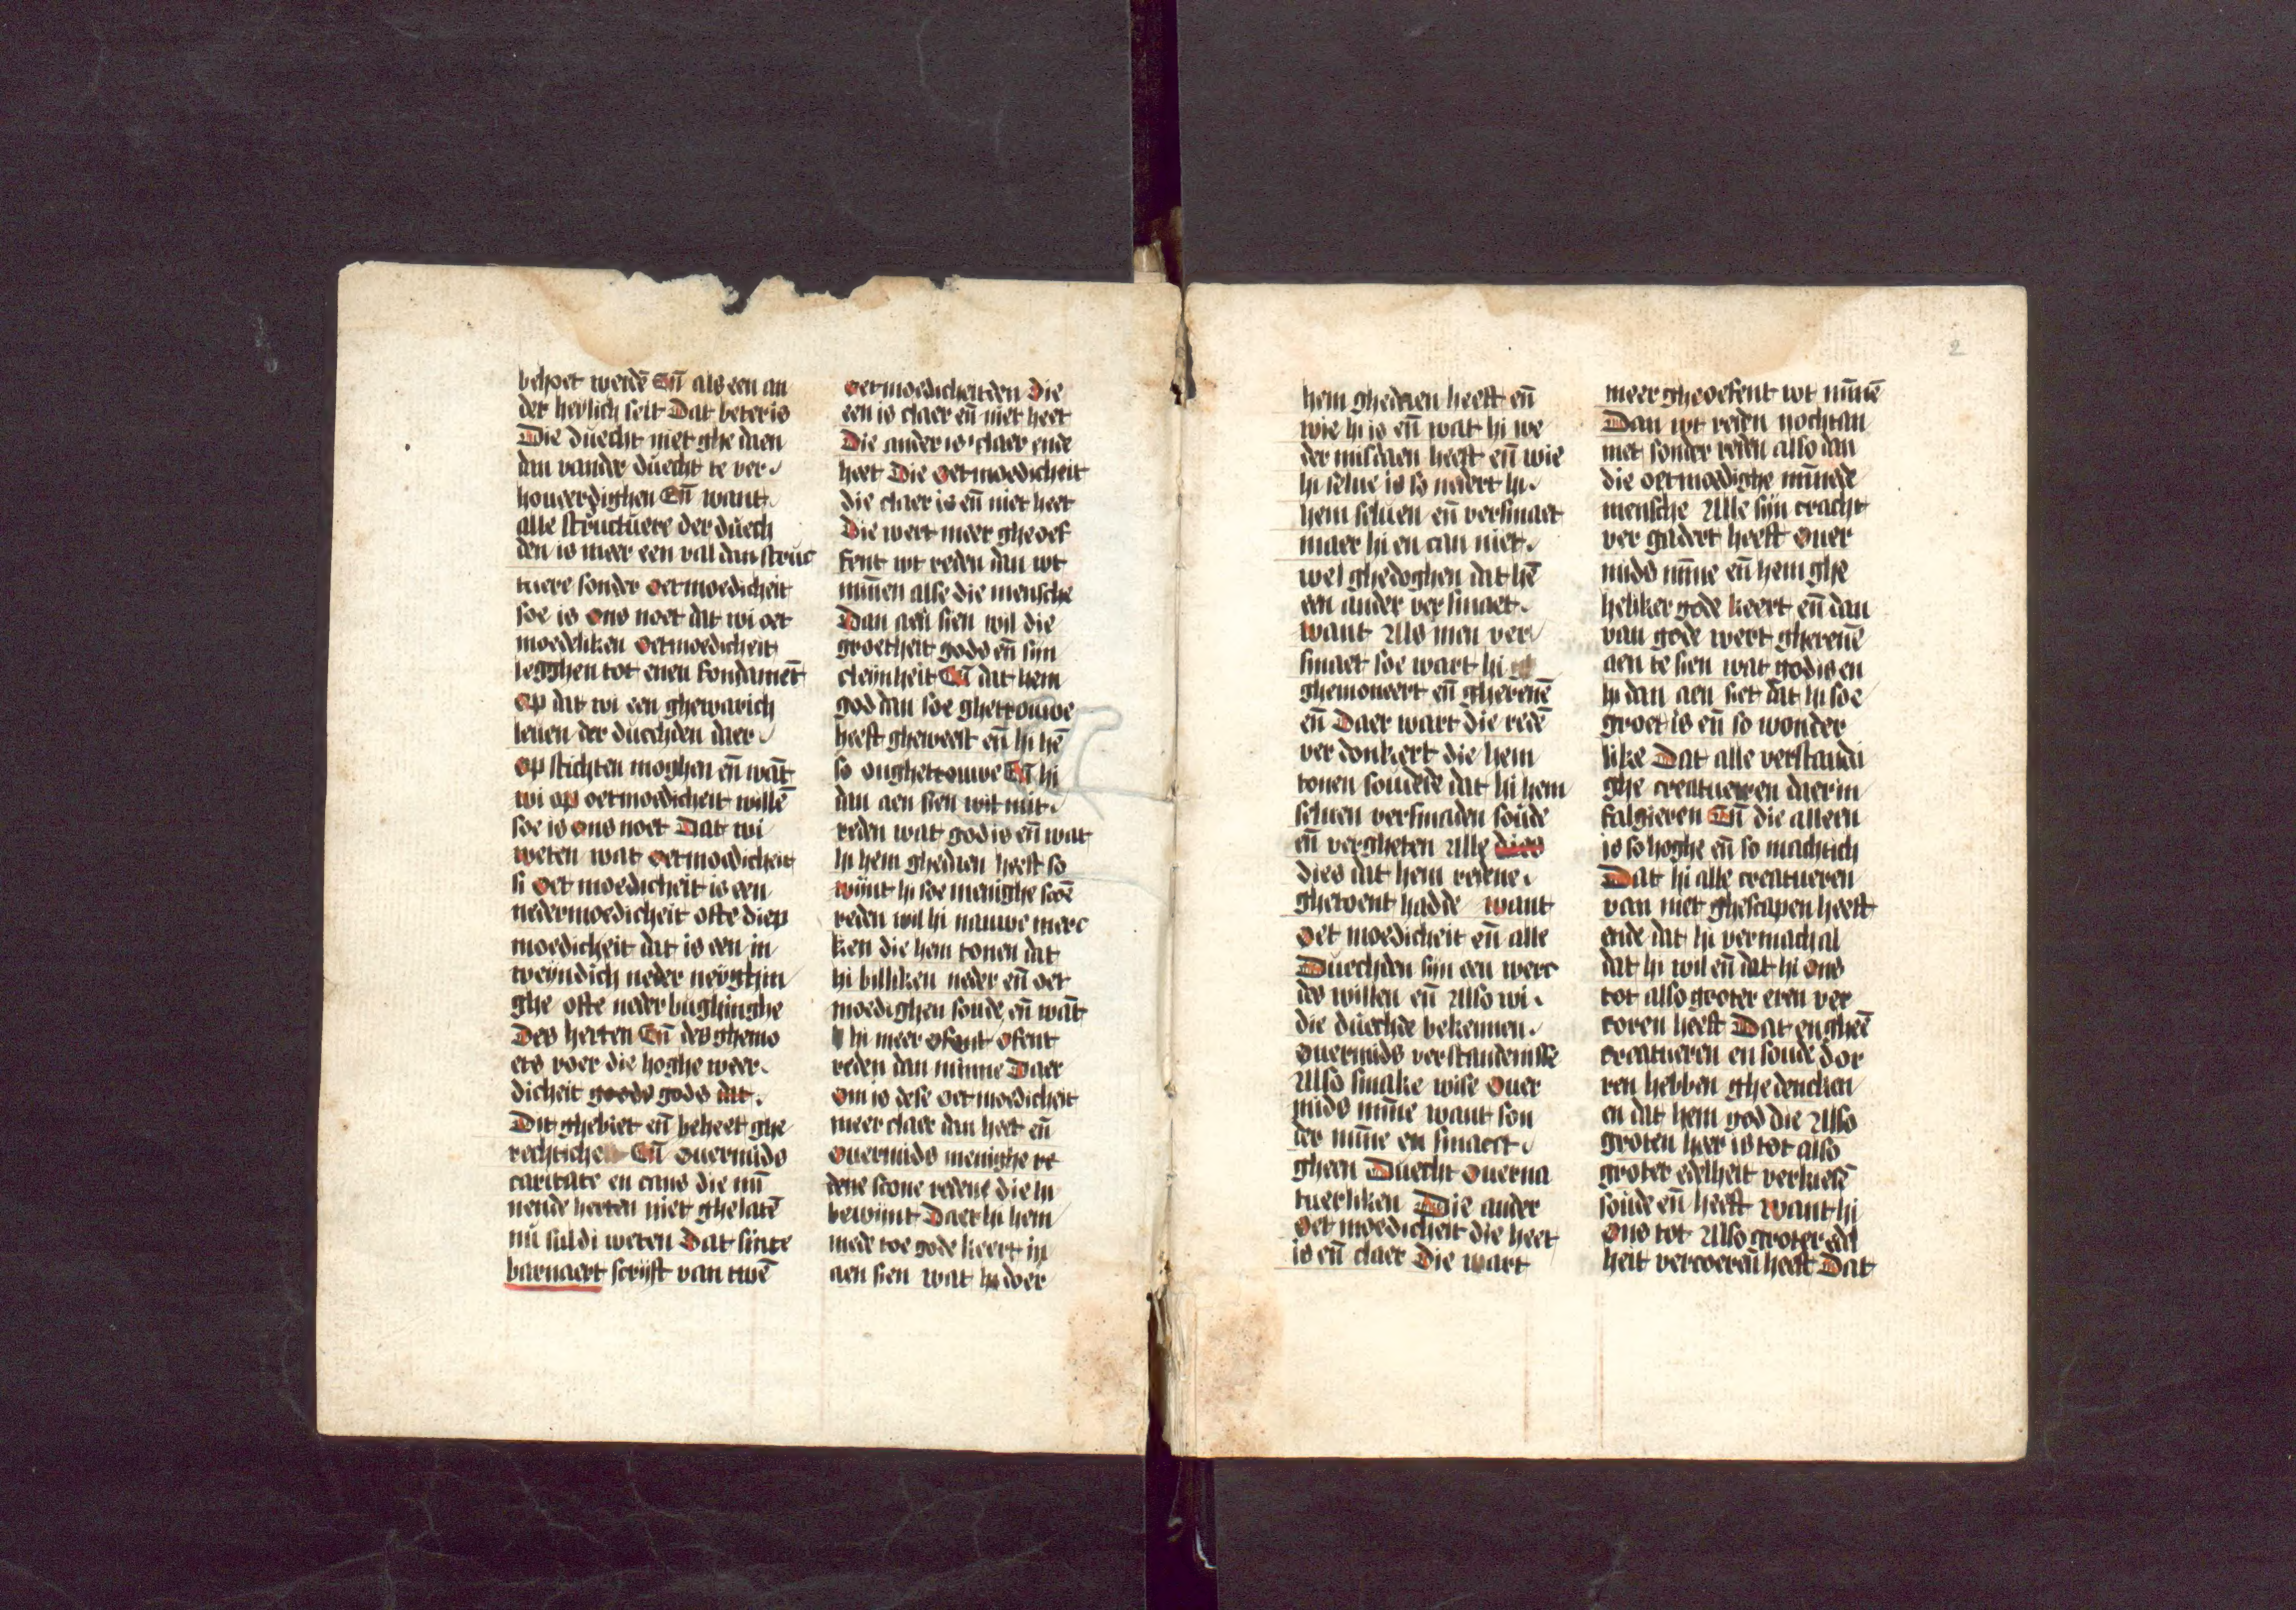 behoet werdē Eñ als een an
der heylich seit Dat beter is
Die duecht niet ghe daen
dan vander duecht te ver
houeerdighen Eñ want
alle structuere der duech
den is meer een val dan struc
tuere sonder oetmoedicheit
soe is ons noet dat wi oet
moedeliken oetmoedicheit
legghen tot enen fondamēt
op dat wi een ghewarich
leuen der duechden daer
op stichten moghen eñ wāt
wi op oetmoedicheit willē
soe is ons noet Dat wi
weten wat oetmoedicheit
si oet moedicheit is een
nedermoedicheit ofte diep
moedicheit dat is een in
weyndich neder neyghin
ghe ofte neder bughinghe
Des herten Eñ des ghemo
ets voer die hoghe weer
dicheit goods gods dat
Dit ghebiet eñ beheet ghe
rechtiche Eñ ouermids
caritate en cans die mī
nende herten niet ghelatē
nu suldi weten Dat sinte
barnaert scrijft van twē
oetmoedicheitden Die
een is claer eñ niet heet
Die ander is claer ende
heet Die oetmoedicheit
die claer is eñ niet heet
Die wert meer gheoef
fent wt reden dan wt
mīnen alse die mensche
Dan aen sien wil die
groetheit gods eñ sijn
cleynheit Eñ dat hem
god dan soe ghetrouwe
heeft gheweest eñ hi hē
so onghetrouwe Eñ hi
dan aen sien wil mit
reden wat god is eñ wat
hi hem ghedaen heeft so
wijnt hi soe menighe scoē
reden wil hi nauwe merc
ken die hem tonen dat
hi billiken neder eñ oet
moedighen soude eñ wāt
hi meer ofent ofent
reden dan minne Daer
om is dese oetmoedicheit
meer claer dan heet eñ
ouermids menighe re
dene scone redene die hi
bewijnt Daer hi hem
mede toe gode keert in
aen sien wat hi doer
2
hem ghedaen heeft eñ
wie hi is eñ wat hi we
der misdaen heeft eñ wie
hi selue is so nedert hi
hem seluen eñ versmaet
maer hi en can niet
wel ghedoghen dat hē
een ander versmaet
want Als men ver
smaet soe wart hi
ghemoueert eñ ghereuē
eñ Daer wart die redē
ver donkert die hem
tonen soudede dat hi hem
seluen versmaden soude
eñ vergheten Alle dies
dies dat hem redene
ghetoent hadde want
oet moedicheit eñ alle
Duechden sijn een werc
des willen eñ Also wi
die duechde bekennen
ouermids verstandenisse
Also smake wise ouer
mids mīne want son
der mīne en smaect
gheen Duecht ouerna
tuerliken Die ander
oet moedicheit die heet
is eñ claer Die wart
meer gheoefent wt mīnē
Dan wt reden nochtan
niet sonder reden also dan
die oetmoedighe mīnede
mensche Alle sijn cracht
ver gadert heeft ouer
mids mīne eñ hem ghe
heliker gode keert eñ dan
van gode wert ghereuē
aen te sien wat god is en
hi dan aen siet dat hi soe
groet is eñ so wonder
like Dat alle verstandi
ghe creatueren daer in
falgieren Eñ die alleen
is so hoghe eñ so machtich
Dat hi alle creatueren
van niet ghescapen heeft
ende dat hi vermach al
dat hi wil eñ dat hi ons
tot also groter eren ver
coren heeft Dat en gheē
creatueren en soude dor
ren hebben ghedencken
en dat hem god die Also
groten heer is tot also
groter edelheit verkiesē
soude eñ heeft want hi
ons tot Also groter edel
heit vercoeren heeft Dat